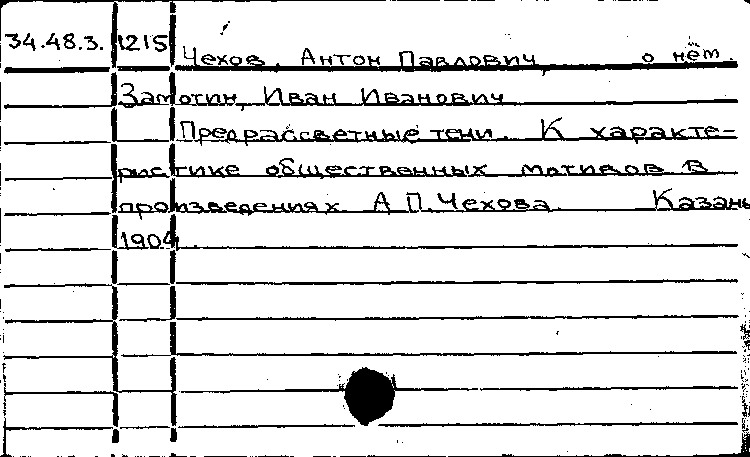 34.48.3. 1215 Чехов, Антон Павлович, о нём.
Замотин, Иван Иванович
Предрассветные тени. К характе-
ристике общественных мотивов в
произведениях А.П.Чехова. Казань
1904.